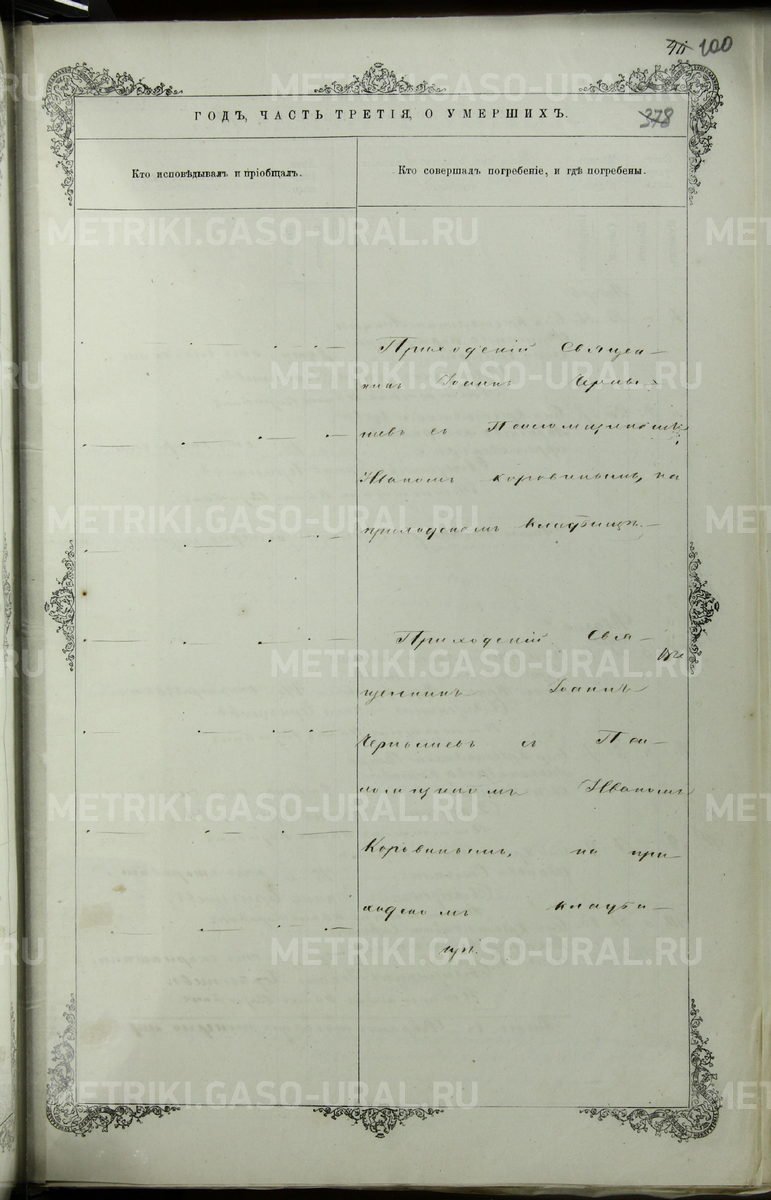 100
ГОДЪ, ЧАСТЬ ТРЕТІЯ, О УМЕРШИХЪ.
378
Кто исповѣдывалъ и пріобщалъ.
Кто совершалъ погребеніе, и гдѣ погребены.
Приходскій Священ-
никъ Іоаннъ
съ Псаломщикомъ
Иваномъ Коровинымъ, на
приходскомъ кладбищѣ.
Приходскій Свя-
щенникъ Іоаннъ
съ Пса-
ломщикомъ Иваномъ
Коровинымъ, на при-
ходскомъ кладби-
щѣ.
METRIKI.GASO-URAL.RU